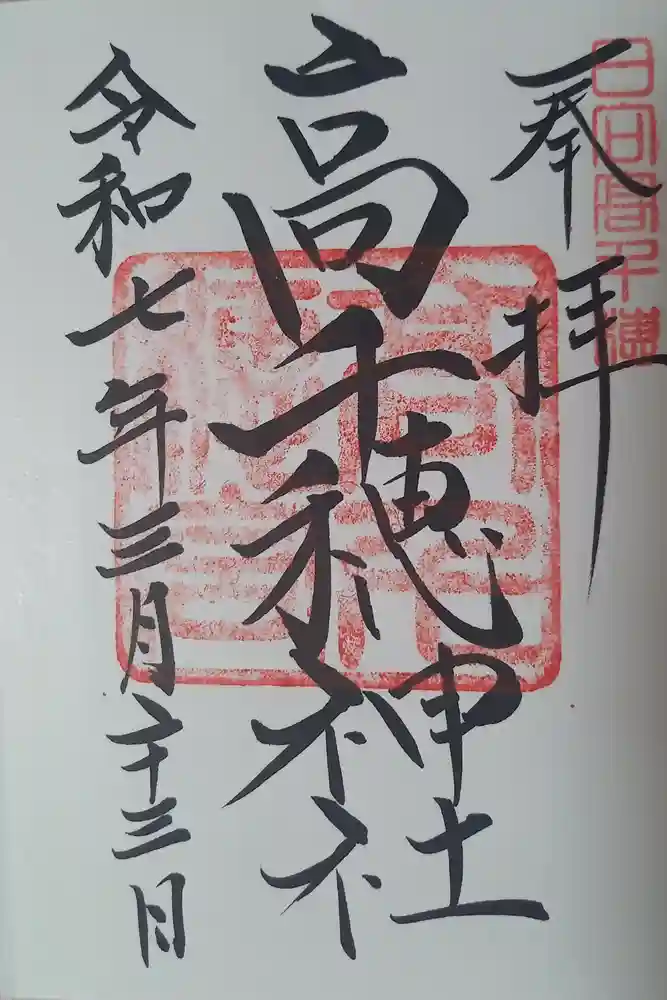 奉拝
日向高千穂
高千穂神社
令和七年三月二十三日